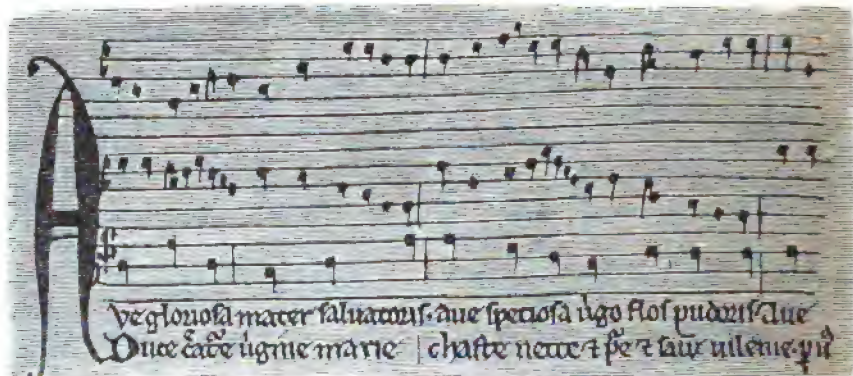 Ave gloriosa mater salvatoris. ave speciosa v̓go flos pudoris. Ave
Duce c̾at̾e v̓gine marie chaste nette ⁊ p̾e ⁊ sanz vilenie.